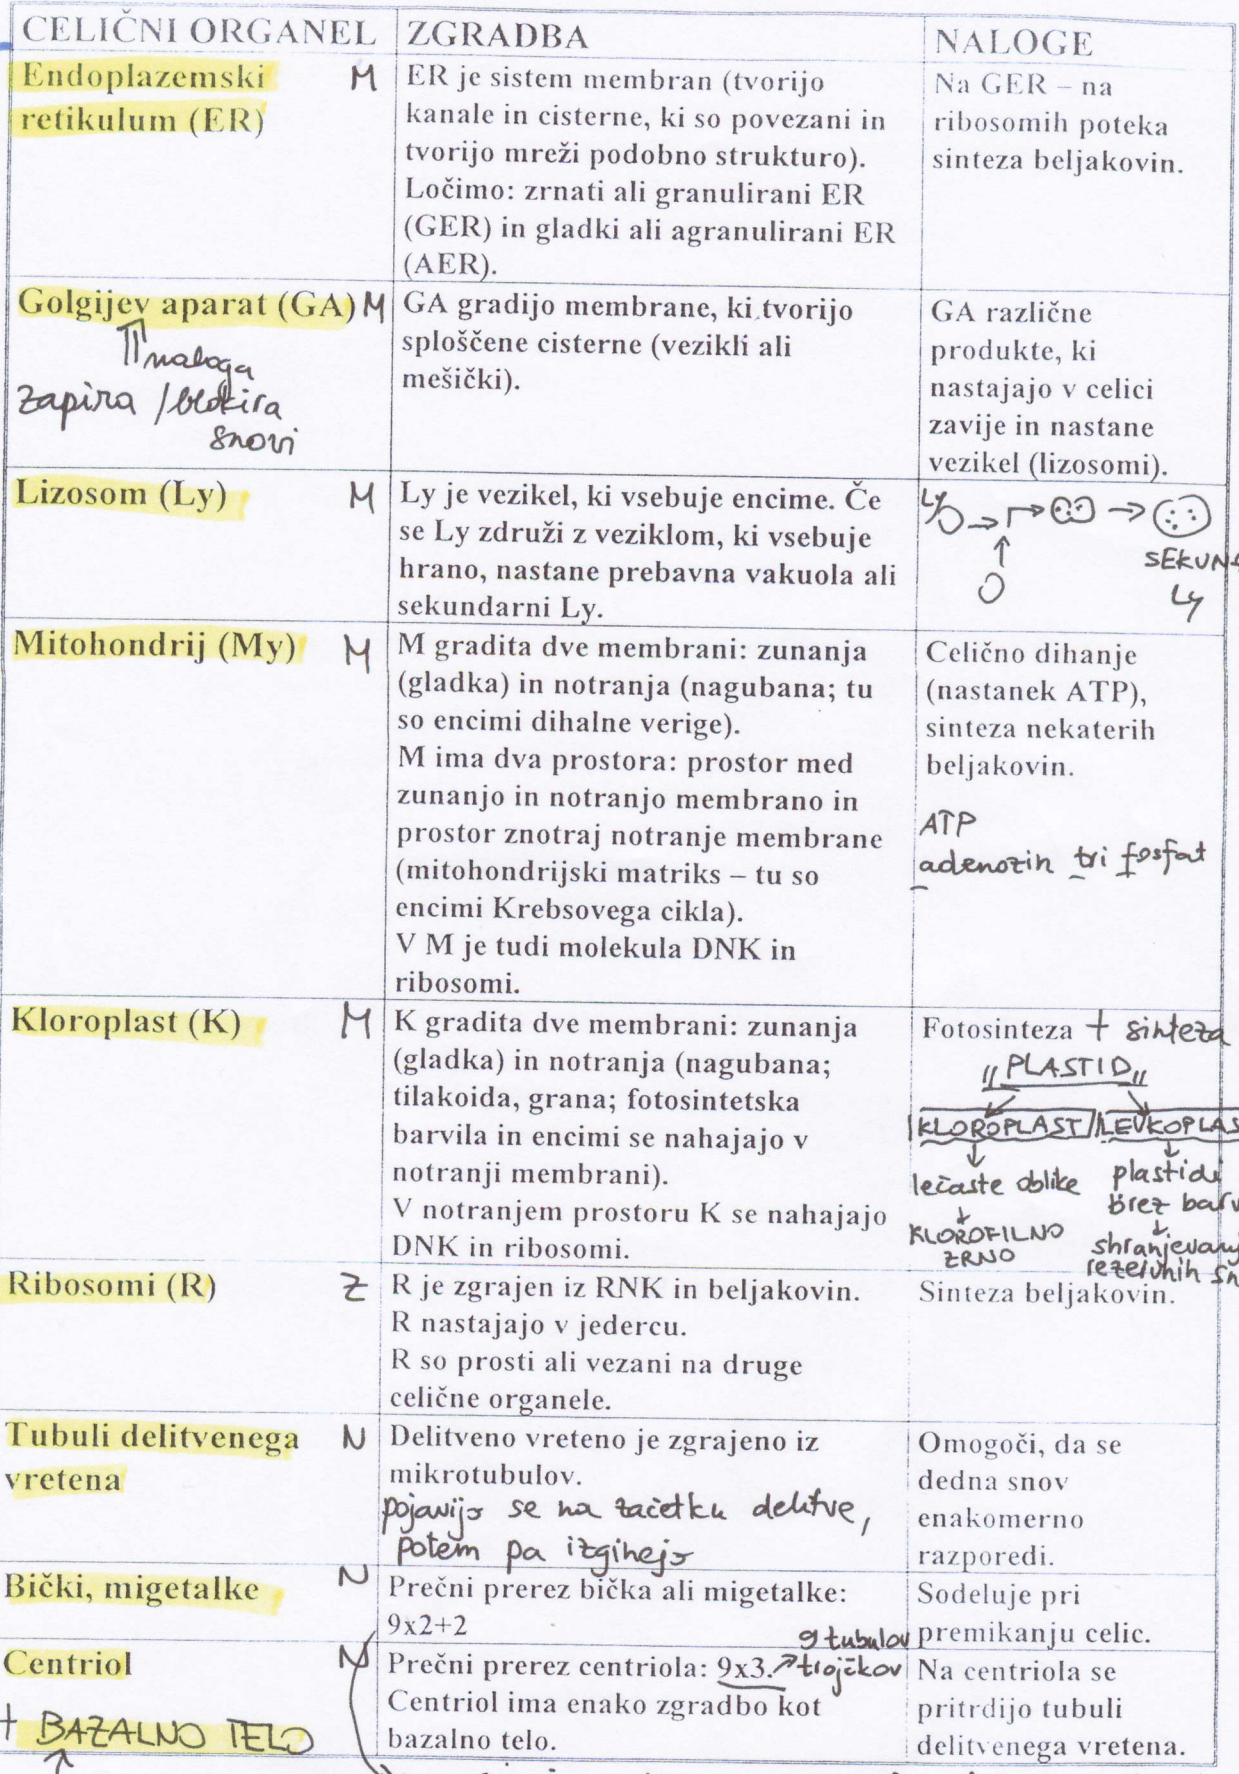 CELIČNI ORGANEL
ZGRADBA
NALOGE
Endoplazemski M
retikulum (ER)
ER je sistem membran (tvorijo
kanale in cisterne, ki so povezani in
tvorijo mreži podobno strukturo).
Ločimo: zrnati ali granulirani ER
(GER) in gladki ali agranulirani ER
(AER).
Na GER – na
ribosomih poteka
sinteza beljakovin.
Golgijev aparat (GA) M
naloga
zapira / blokira
snovi
GA gradijo membrane, ki tvorijo
sploščene cisterne (vezikli ali
mešički).
GA različne
produkte, ki
nastajajo v celici
zavije in nastane
vezikel (lizosomi).
Lizosom (Ly) M
Ly je vezikel, ki vsebuje encime. Če
se Ly združi z veziklom, ki vsebuje
hrano, nastane prebavna vakuola ali
sekundarni Ly.
Ly
SEKUN
Ly
Mitohondrij (My) M
M gradita dve membrani: zunanja
(gladka) in notranja (nagubana; tu
so encimi dihalne verige).
M ima dva prostora: prostor med
zunanjo in notranjo membrano in
prostor znotraj notranje membrane
(mitohondrijski matriks – tu so
encimi Krebsovega cikla).
V M je tudi molekula DNK in
ribosomi.
Celično dihanje
(nastanek ATP),
sinteza nekaterih
beljakovin.
ATP
adenozin tri fosfat
Kloroplast (K) M
K gradita dve membrani: zunanja
(gladka) in notranja (nagubana;
tilakoida, grana; fotosintetska
barvila in encimi se nahajajo v
notranji membrani).
V notranjem prostoru K se nahajajo
DNK in ribosomi.
Fotosinteza + sinteza
"PLASTID"
KLOROPLAST LEVKOPLAS
lečaste oblike
KLOROFILNO
ZRNO
plastidi
brez barv
shranjevanj
rezervnih sn
Ribosomi (R) Z
R je zgrajen iz RNK in beljakovin.
R nastajajo v jedercu.
R so prosti ali vezani na druge
celične organele.
Sinteza beljakovin.
Tubuli delitvenega N
vretena
Delitveno vreteno je zgrajeno iz
mikrotubulov.
pojavijo se na začetku delitve,
potem pa izginejo
Omogoči, da se
dedna snov
enakomerno
razporedi.
Bički, migetalke N
Prečni prerez bička ali migetalke:
9x2+2
Sodeluje pri
premikanju celic.
Centriol N
+ BAZALNO TELO
Prečni prerez centriola: 9x3.
9 tubulov
trojčkov
Centriol ima enako zgradbo kot
bazalno telo.
Na centriola se
pritrdijo tubuli
delitvenega vretena.